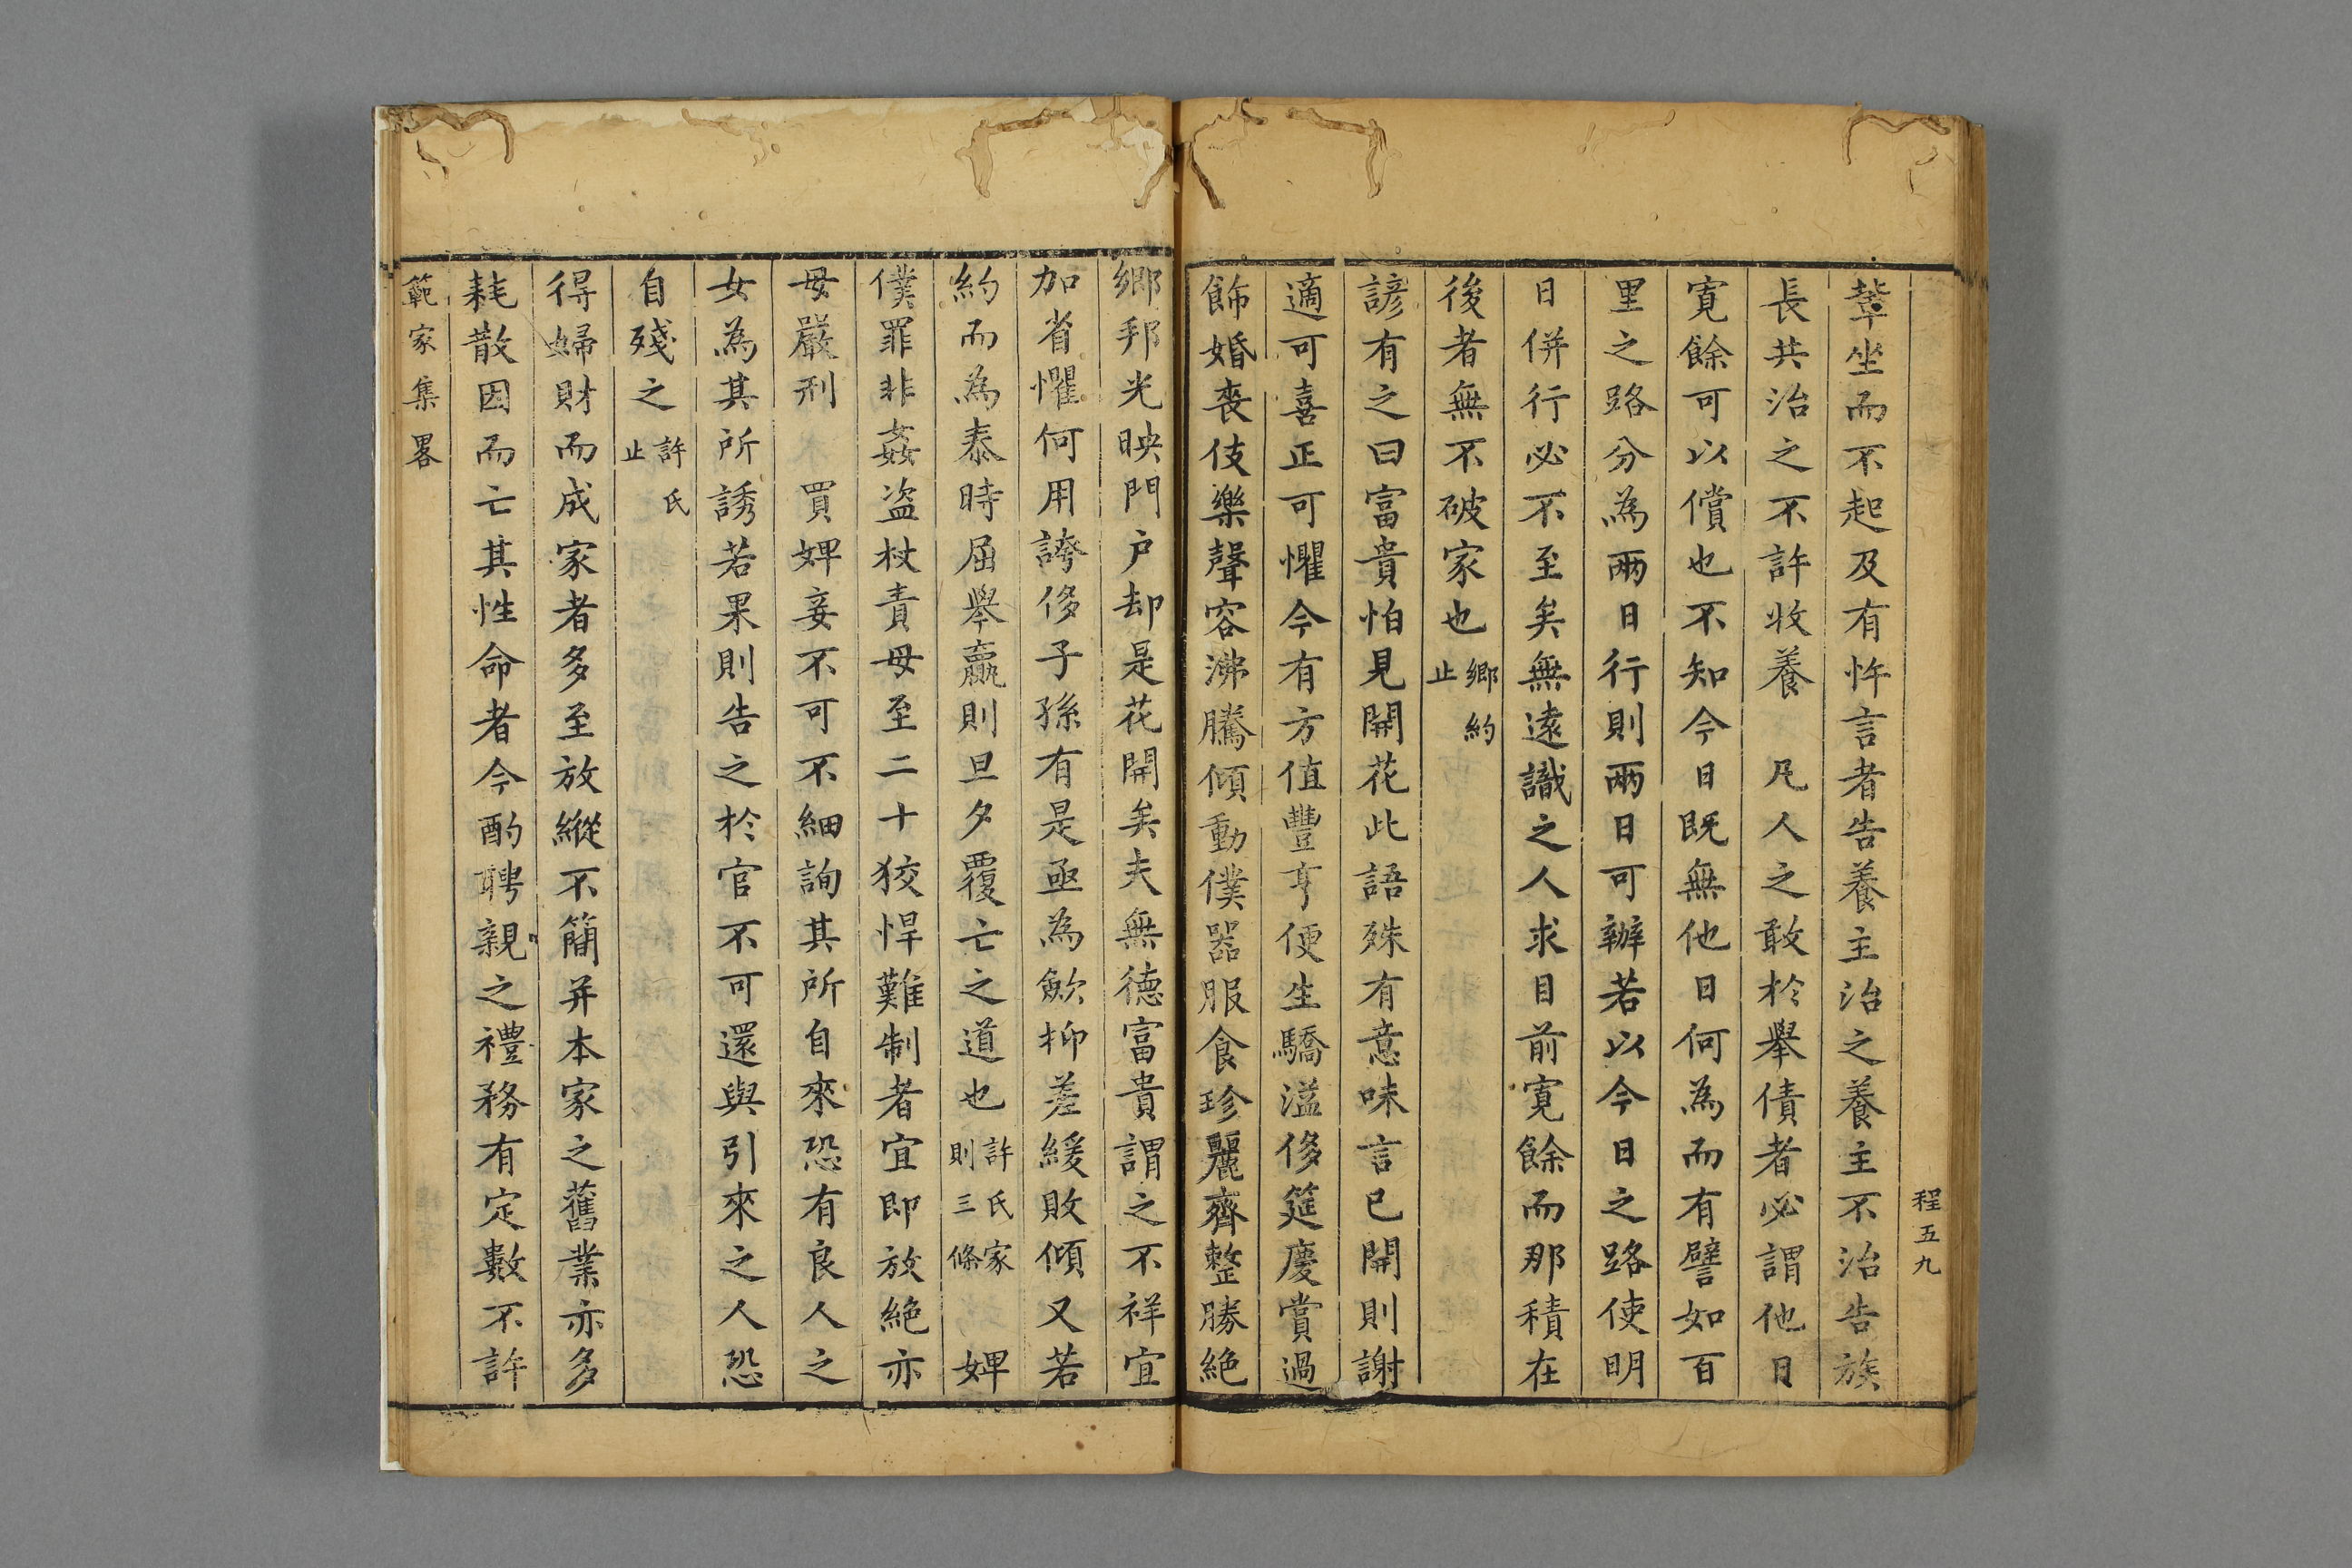 程五九
輩坐而不起及有忤言者告養主治之養主不治告族
長共治之不許收養　凡人之敢於舉債者必謂他日
寛餘可以償也不知今日既無他日何為而有譬如百
里之路分為兩日行則兩日可辦若以今日之路使明
日併行必不至矣無遠識之人求目前寛餘而那積在
後者無不破家也鄉約止
諺有之曰富貴怕見開花此語殊有意味言已開則謝
適可喜正可懼今有方值豐亨便生驕溢侈筵慶賞過
飾婚喪伎樂聲容沸騰傾動僕器服食珍麗齊整勝絶
鄉邦光映門户却是花開矣夫無德富貴謂之不祥宜
加省懼何用誇侈子孫有是亟為歛抑差緩敗傾又若
約而為泰時屈舉贏則旦夕覆亡之道也許氏家則三條　婢
僕罪非姦盗杖責毋至二十狡悍難制者宜即放絶亦
毋嚴刑　買婢妾不可不細詢其所自來恐有良人之
女為其所誘若果則告之於官不可還與引來之人恐
自殘之許氏止
得婦財而成家者多至放縱不簡并本家之舊業亦多
耗散因而亡其性命者今酌聘親之禮務有定數不許
範家集畧